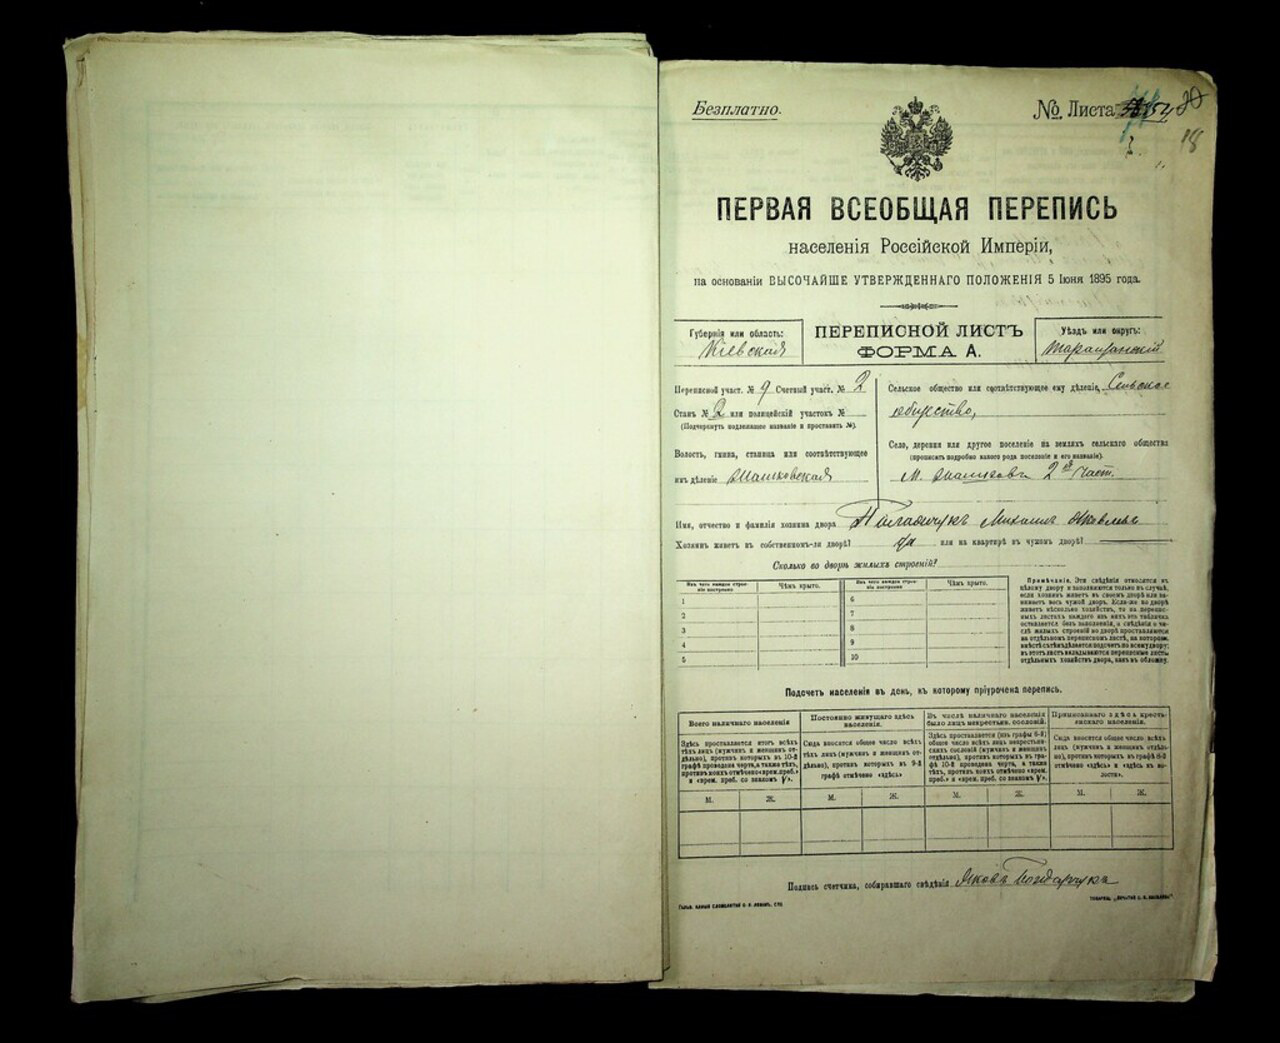 Безплатно.
№ Листа 54 80
18
ПЕРВАЯ ВСЕОБЩАЯ ПЕРЕПИСЬ
населенія Россійской Имперіи,
на основаніи ВЫСОЧАЙШЕ УТВЕРЖДЕННАГО ПОЛОЖЕНІЯ 5 Іюня 1895 года.
Губернія или область:
Кіевская
ПЕРЕПИСНОЙ ЛИСТЪ
ФОРМА А.
Уѣздъ или округъ:
Таращанскій
Переписной участ. № 9 Счетный участ. № 2
Станъ № 2 или полицейскій участокъ №
(Подчеркнуть надлежащее названіе и проставить №).
Волость, гмина, станица или соотвѣтствующее
имъ дѣленіе
Сельское общество или соотвѣтствующее ему дѣленіе, Сельское
общество,
Село, деревня или другое поселеніе на земляхъ сельскаго общества
(прописать подробно какого рода поселеніе и его названіе).
М. 2ой част.
Имя, отчество и фамилія хозяина двора Михаилъ Яковлевъ
Хозяинъ живетъ въ собственномъ-ли дворѣ? да или на квартирѣ въ чужомъ дворѣ?
Сколько во дворѣ жилыхъ строеній?
Изъ чего каждое строеніе построено
Чѣмъ крыто.
Изъ чего каждое строеніе построено
Чѣмъ крыто.
1
2
3
4
5
6
7
8
9
10
Примѣчаніе. Эти свѣдѣнія относятся къ
цѣлому двору и заполняются только въ случаѣ,
если хозяинъ живетъ въ своемъ дворѣ или за-
нимаетъ весь чужой дворъ. Если-же во дворѣ
живетъ нѣсколько хозяйствъ, то на перепис-
ныхъ листахъ каждаго изъ нихъ эта табличка
оставляется безъ заполненія, а свѣдѣнія о чи-
слѣ жилыхъ строеній во дворѣ проставляются
на отдѣльномъ переписномъ листѣ, на которомъ
вмѣстѣ съ тѣмъ дѣлается подсчетъ по всему двору;
въ этотъ листъ вкладываются переписные листы
отдѣльныхъ хозяйствъ двора, какъ въ обложку.
Подсчетъ населенія въ день, къ которому пріурочена перепись.
Всего наличнаго населенія
Здѣсь проставляется итогъ всѣхъ
тѣхъ лицъ (мужчинъ и женщинъ от-
дѣльно), противъ которыхъ въ 10-й
графѣ проведена черта, а также тѣхъ,
противъ коихъ отмѣчено «врем. преб.»
и «врем. преб. со знакомъ V».
М. Ж.
Постоянно живущаго здѣсь
населенія.
Сюда вносится общее число всѣхъ
тѣхъ лицъ (мужчинъ и женщинъ от-
дѣльно), противъ которыхъ въ 9-й
графѣ отмѣчено «здѣсь»
М. Ж.
Въ числѣ наличнаго населенія
было лицъ некрестьян. сословій.
Здѣсь проставляется (изъ графы 6-й)
общее число всѣхъ лицъ некрестьян-
скихъ сословій (мужчинъ и женщинъ
отдѣльно), противъ которыхъ въ гра-
фѣ 10-й проведена черта, а также
тѣхъ, противъ коихъ отмѣчено «врем.
преб.» и «врем. преб. со знакомъ V».
М. Ж.
Приписаннаго здѣсь кресть-
янскаго населенія.
Сюда вносится общее число всѣхъ
лицъ (мужчинъ и женщинъ отдѣль-
но), противъ которыхъ въ графѣ 8-й
отмѣчено «здѣсь» и «здѣсь въ во-
лости».
М. Ж.
Подпись счетчика, собиравшаго свѣдѣнія Яковъ Бондарчукъ